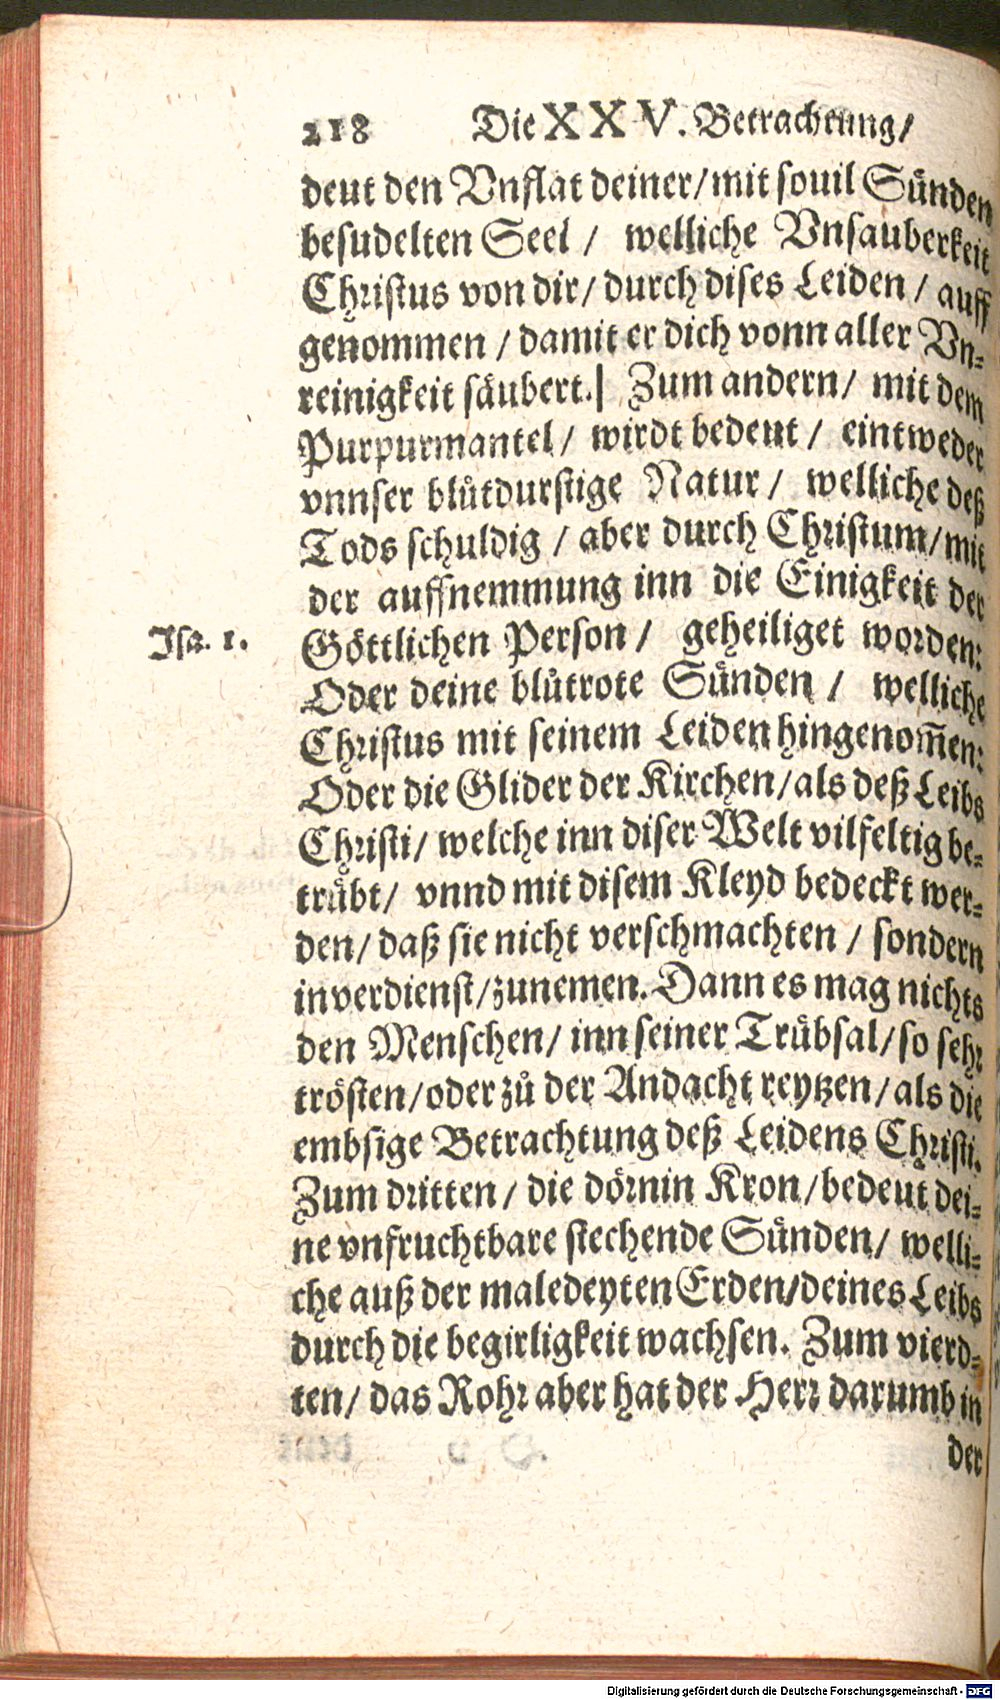 218 Die XXV. Betrachtung/
deut den Vnflat deiner/ mit souil Sünden
besudelten Seel / welliche Vnsauberkeit
Christus von dir/ durch dises Leiden / auff
genommen / damit er dich vonn aller Vn-
reinigkeit säubert.| Zum andern/ mit dem
Purpurmantel/ wirdt bedeut / eintweder
vnnser blůtdurstige Natur / welliche deß
Tods schuldig / aber durch Christum/ mit
der auffnemmung inn die Einigkeit der
Isa. 1.
Göttlichen Person / geheiliget worden:
Oder deine blůtrote Sünden / welliche
Christus mit seinem Leiden hingenom̄en:
Oder die Glider der Kirchen/ als deß Leibs
Christi/ welche inn diser Welt vilfeltig be-
trübt/ vnnd mit disem Kleyd bedeckt wer-
den/ daß sie nicht verschmachten / sondern
in verdienst/ zunemen. Dann es mag nichts
den Menschen/ inn seiner Trübsal/ so sehr
trösten/ oder zů der Andacht reytzen/ als die
embsige Betrachtung deß Leidens Christi.
Zum dritten / die dörnin Kron/ bedeut dei-
ne vnfruchtbare stechende Sünden/ welli-
che auß der maledeyten Erden/ deines Leibs
durch die begirligkeit wachsen. Zum vierd-
ten/ das Rohr aber hat der Herr darumb in
der
Digitalisierung gefördert durch die Deutsche Forschungsgemeinschaft - DFG